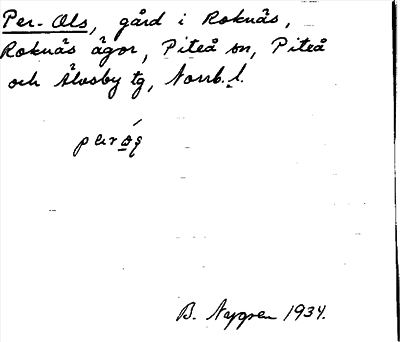 Per-Ols, gård i Roknäs,
Roknäs ägor, Piteå sn, Piteå
och Älvsby tg, Norrb. l.
B. Nygren 1934.